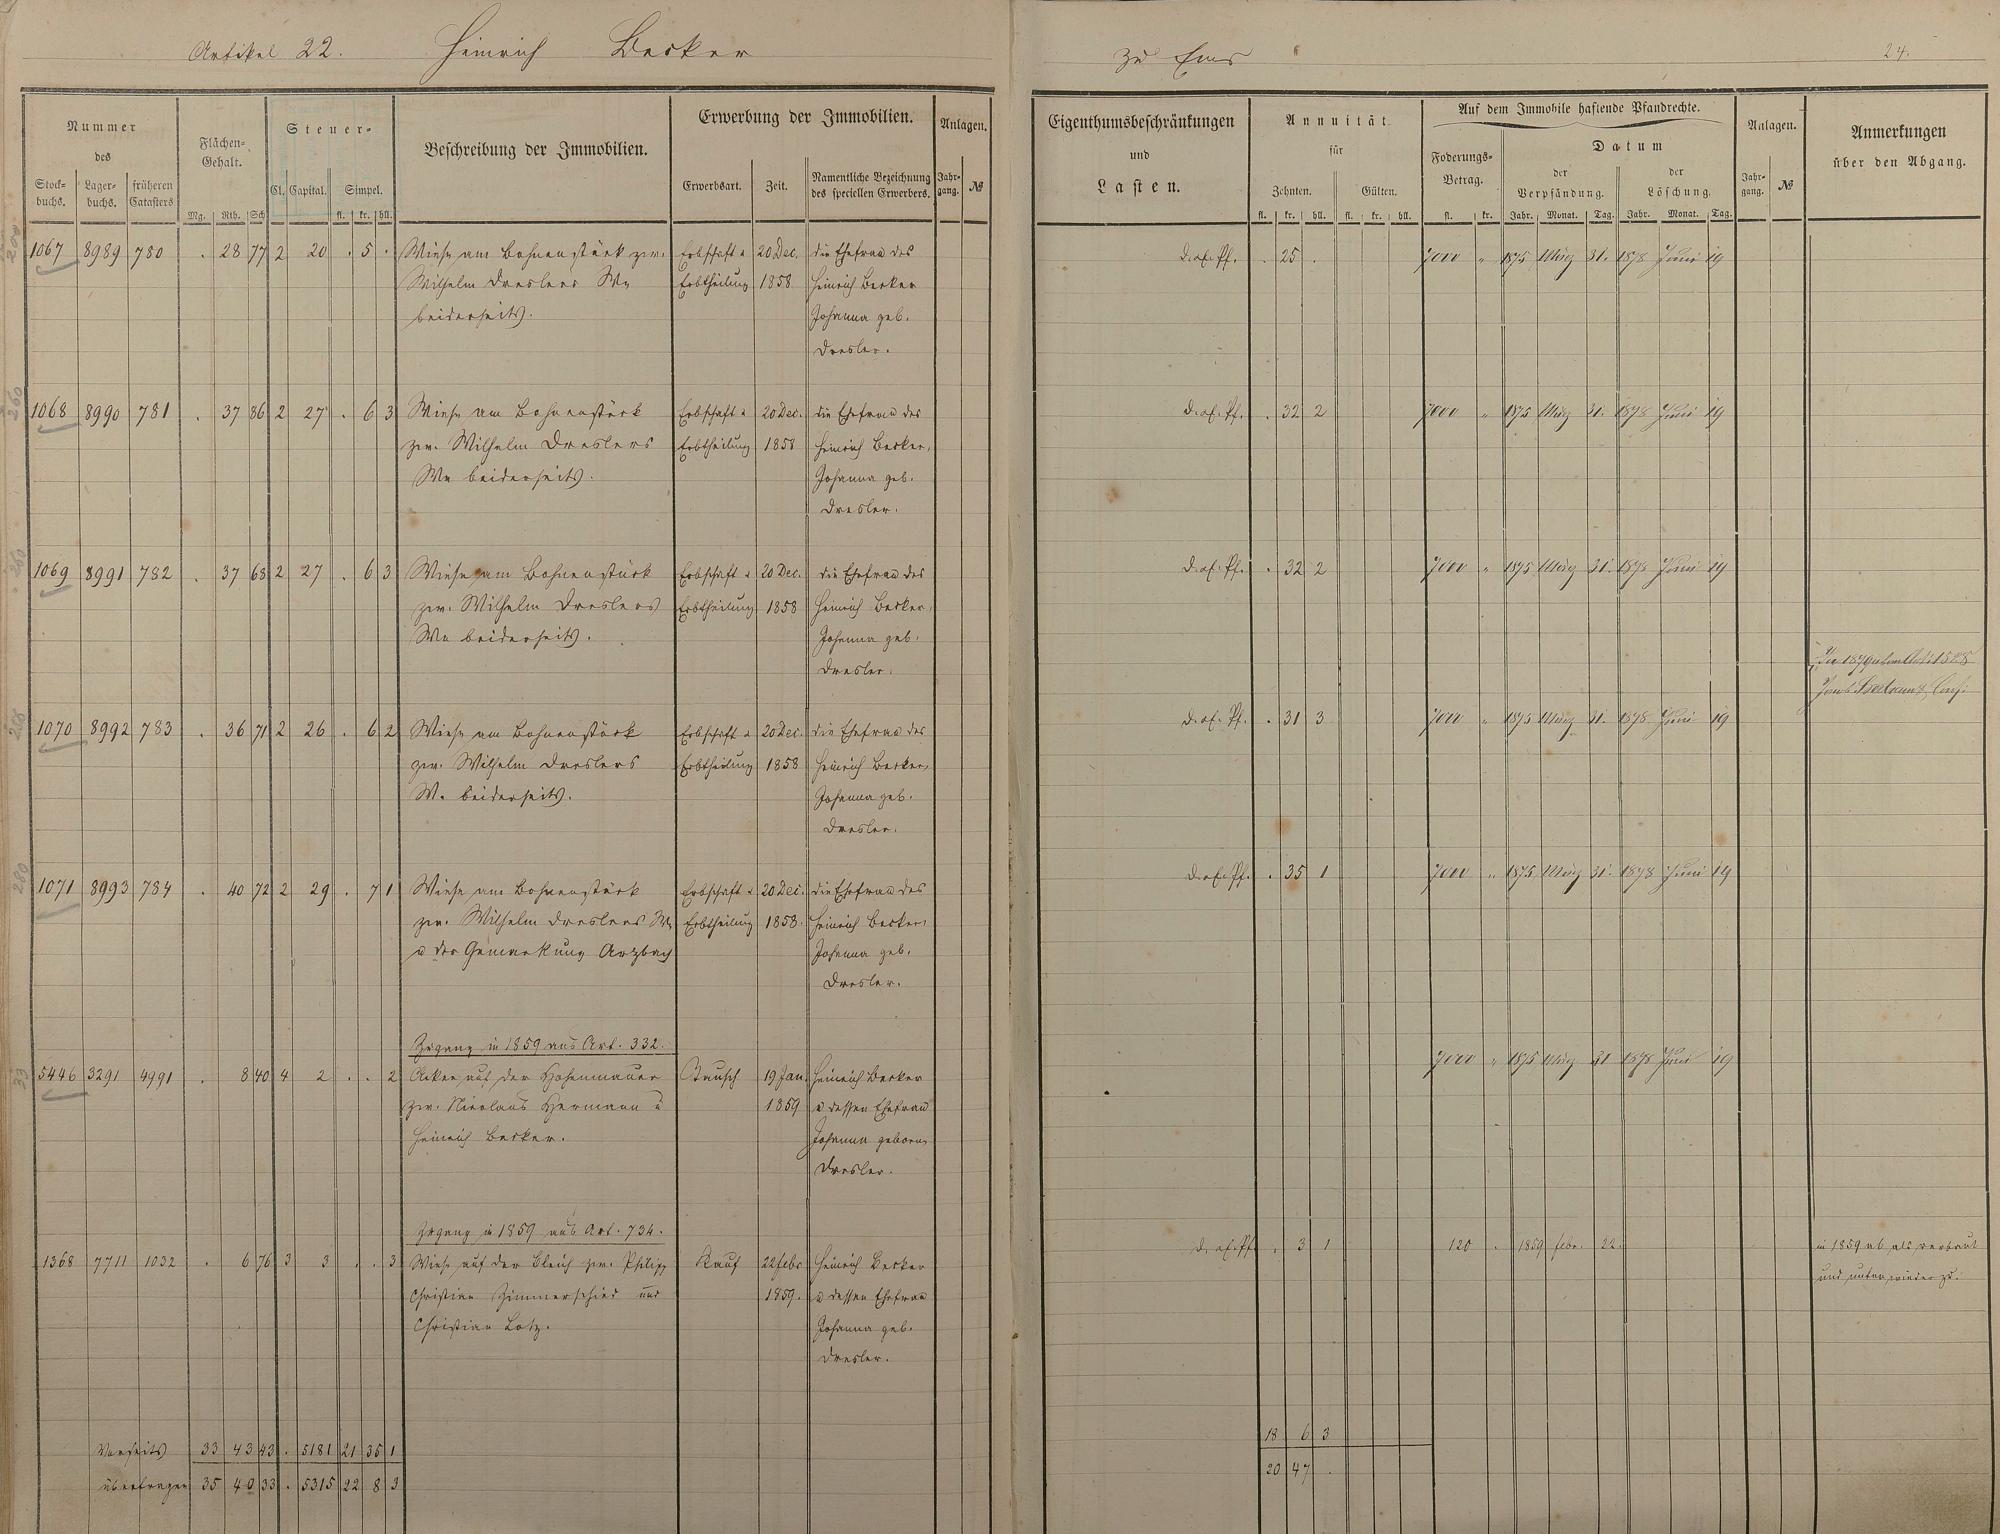 Artikel 22. Heinrich Becker zu Ems 24.
Nummer des
Stock-buchs. Lager-buchs. früheren Catasters
Flächen-Gehalt.
Mg. Rth. Sch
Steuer-
Cl. Capital. Simpel.
fl. kr. hll.
Beschreibung der Immobilien.
Erwerbung der Immobilien.
Erwerbsart. Zeit. Namentliche Bezeichnung des speciellen Erwerbers.
Anlagen.
Jahr-gang. №
Eigenthumsbeschränkungen
und
Lasten.
Annuität
für
Zehnten. Gülten.
fl. kr. hll. fl. kr. hll.
Auf dem Immobile haftende Pfandrechte.
Foderungs-Betrag.
fl. kr.
Datum
der Verpfändung. der Löschung.
Jahr. Monat. Tag. Jahr. Monat. Tag.
Anlagen.
Jahr-gang. №
Anmerkungen
über den Abgang.
200
1067 8989 780 . 28 77 2 20 . 5 . Wiese am Bohnenstück zw. Erbschaft u 20 Dec. die Ehefrau des d. o. Pf. . 25 . 7000 " 1875 März 31. 1878 Juni 19
Wilhelm Dreslers We Erbtheilung 1858 Heinrich Becker
beiderseits. Johanna geb.
Dresler.
260
1068 8990 781 . 37 86 2 27 . 6 3 Wiese am Bohnenstück Erbschaft u 20 Dec. die Ehefrau des d. o. Pf. . 32 2 7000 " 1875 März 31. 1878 Juni 19
zw. Wilhelm Dreslers Erbtheilung 1858 Heinrich Becker,
We beiderseits. Johanna geb.
Dresler.
260
1069 8991 782 . 37 68 2 27 . 6 3 Wiese am Bohnenstück Erbschaft u 20 Dec. die Ehefrau des d. o. Pf. . 32 2 7000 " 1875 März 31. 1878 Juni 19
zw. Wilhelm Dreslers Erbtheilung 1858 Heinrich Becker,
We beiderseits. Johanna geb.
Dresler.
In 1879
1070 8992 783 . 36 71 2 26 . 6 2 Wiese am Bohnenstück Erbschaft u 20 Dec. die Ehefrau des d. o. Pf. . 31 3 7000 " 1875 März 31. 1878 Juni 19
zw. Wilhelm Dreslers Erbtheilung 1858 Heinrich Becker,
We beiderseits. Johanna geb.
Dresler.
280
1071 8993 784 . 40 72 2 29 . 7 1 Wiese am Bohnenstück Erbschaft u 20 Dec. die Ehefrau des d. o. Pf. . 35 1 7000 " 1875 März 31. 1878 Juni 19
zw. Wilhelm Dreslers We Erbtheilung 1858. Heinrich Becker,
u der Gemarkung Arzbach Johanna geb.
Dresler.
Zugang in 1859 aus Art. 332.
33
5446 3291 4991 . 8 40 4 2 . . 2 Acker auf der Hohenmauer Tausch 19 Jan. Heinrich Becker 7000 " 1875 März 31 1878 Juni 19
zw. Nicolaus Hermann u 1859 u dessen Ehefrau
Heinrich Becker. Johanna geborne
Dresler.
Zugang in 1859 aus Art. 734.
1368 7711 1032 . 6 76 3 3 . . 3 Wiese auf der Bleich zw. Philipp Kauf 22 febr Heinrich Becker d. o. Pf. . 3 1 120 . 1859 febr. 22. in 1859 ab als verbaut
Christian Zimmerschied und 1859. u dessen Ehefrau und unten wieder zu.
Christian Lotz. Johanna geb.
Dresler.
Vorseits 33 43 43 . 5181 21 35 1 18 6 3
übertragen 35 40 33 . 5315 22 8 3 20 47 .